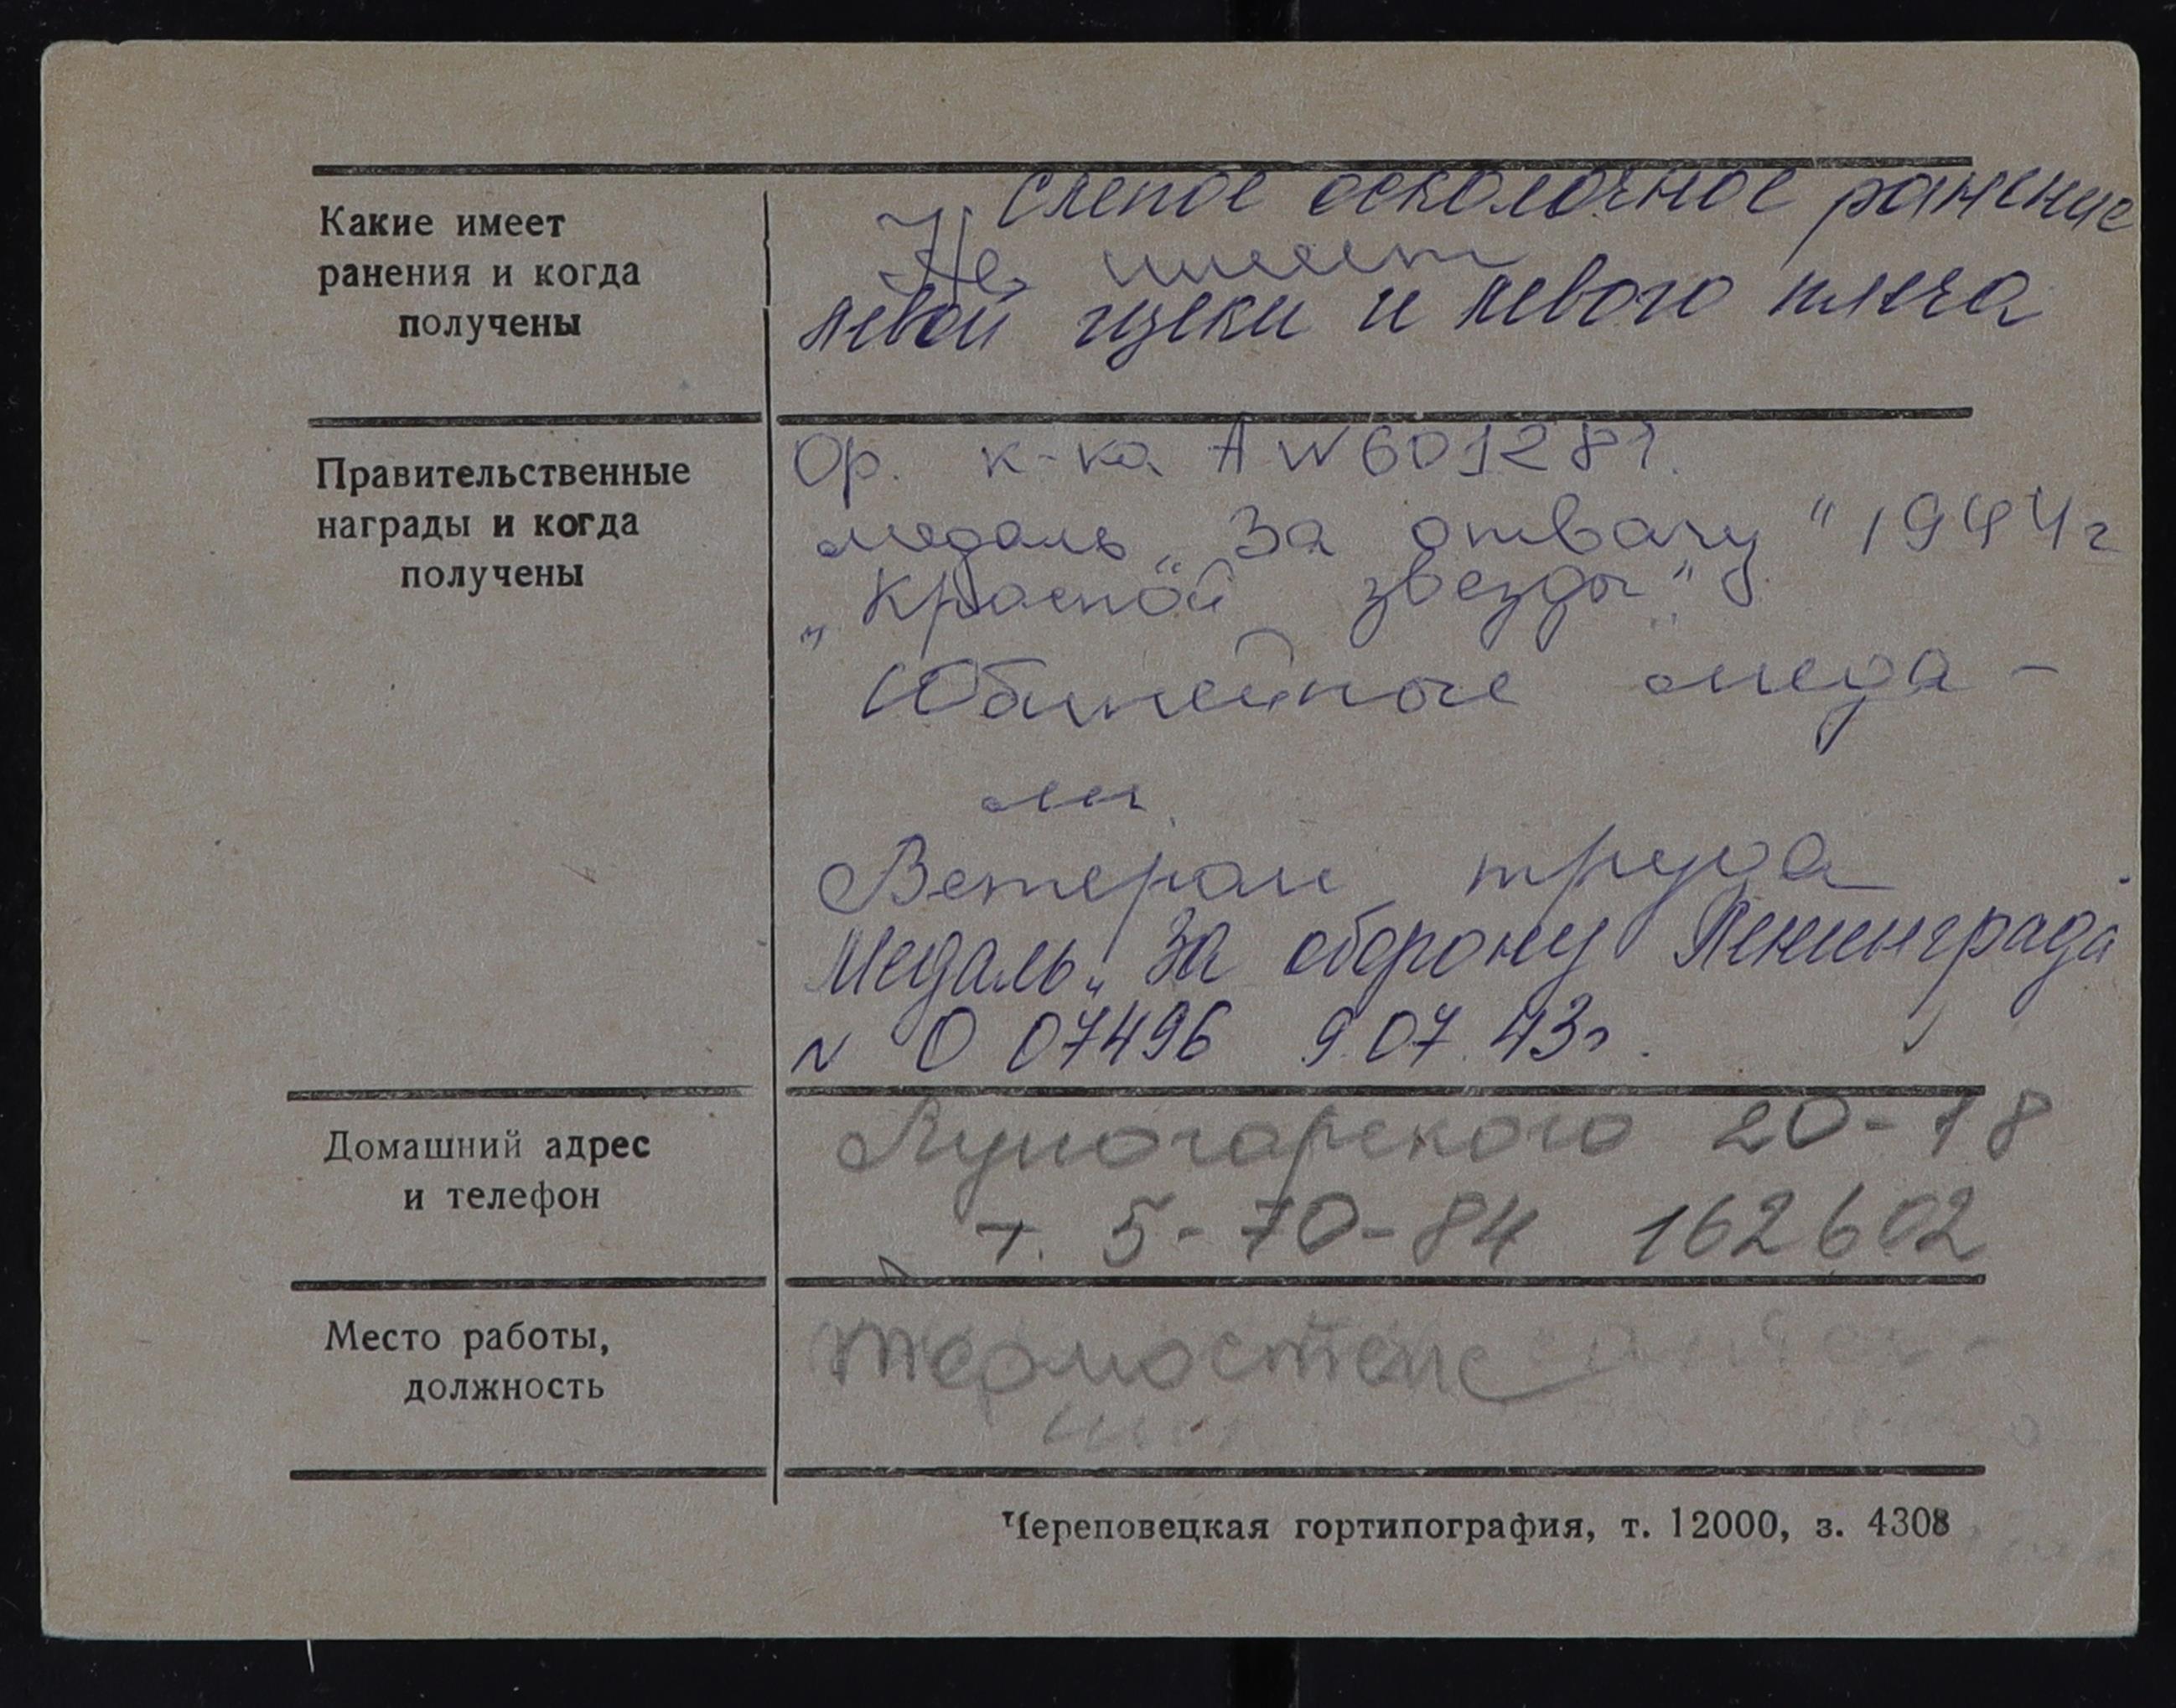 Какие имеет
ранения и когда
получены
слепое осколочное ранение
Не имеет
левой щеки и левого плеча
Правительственные
награды и когда
получены
Ор. к-ка А №601281.
медаль „За отвагу" 1944г
„Красной звезды"
Юбилейные меда-
ли
Ветеран труда
Медаль „За оборону Ленинграда
№ О 07496 9.07.43г.
Домашний адрес
и телефон
Луначарского 20-18
т. 5-70-84 162602
Место работы,
должность
Череповецкая гортипография, т. 12000, з. 4308